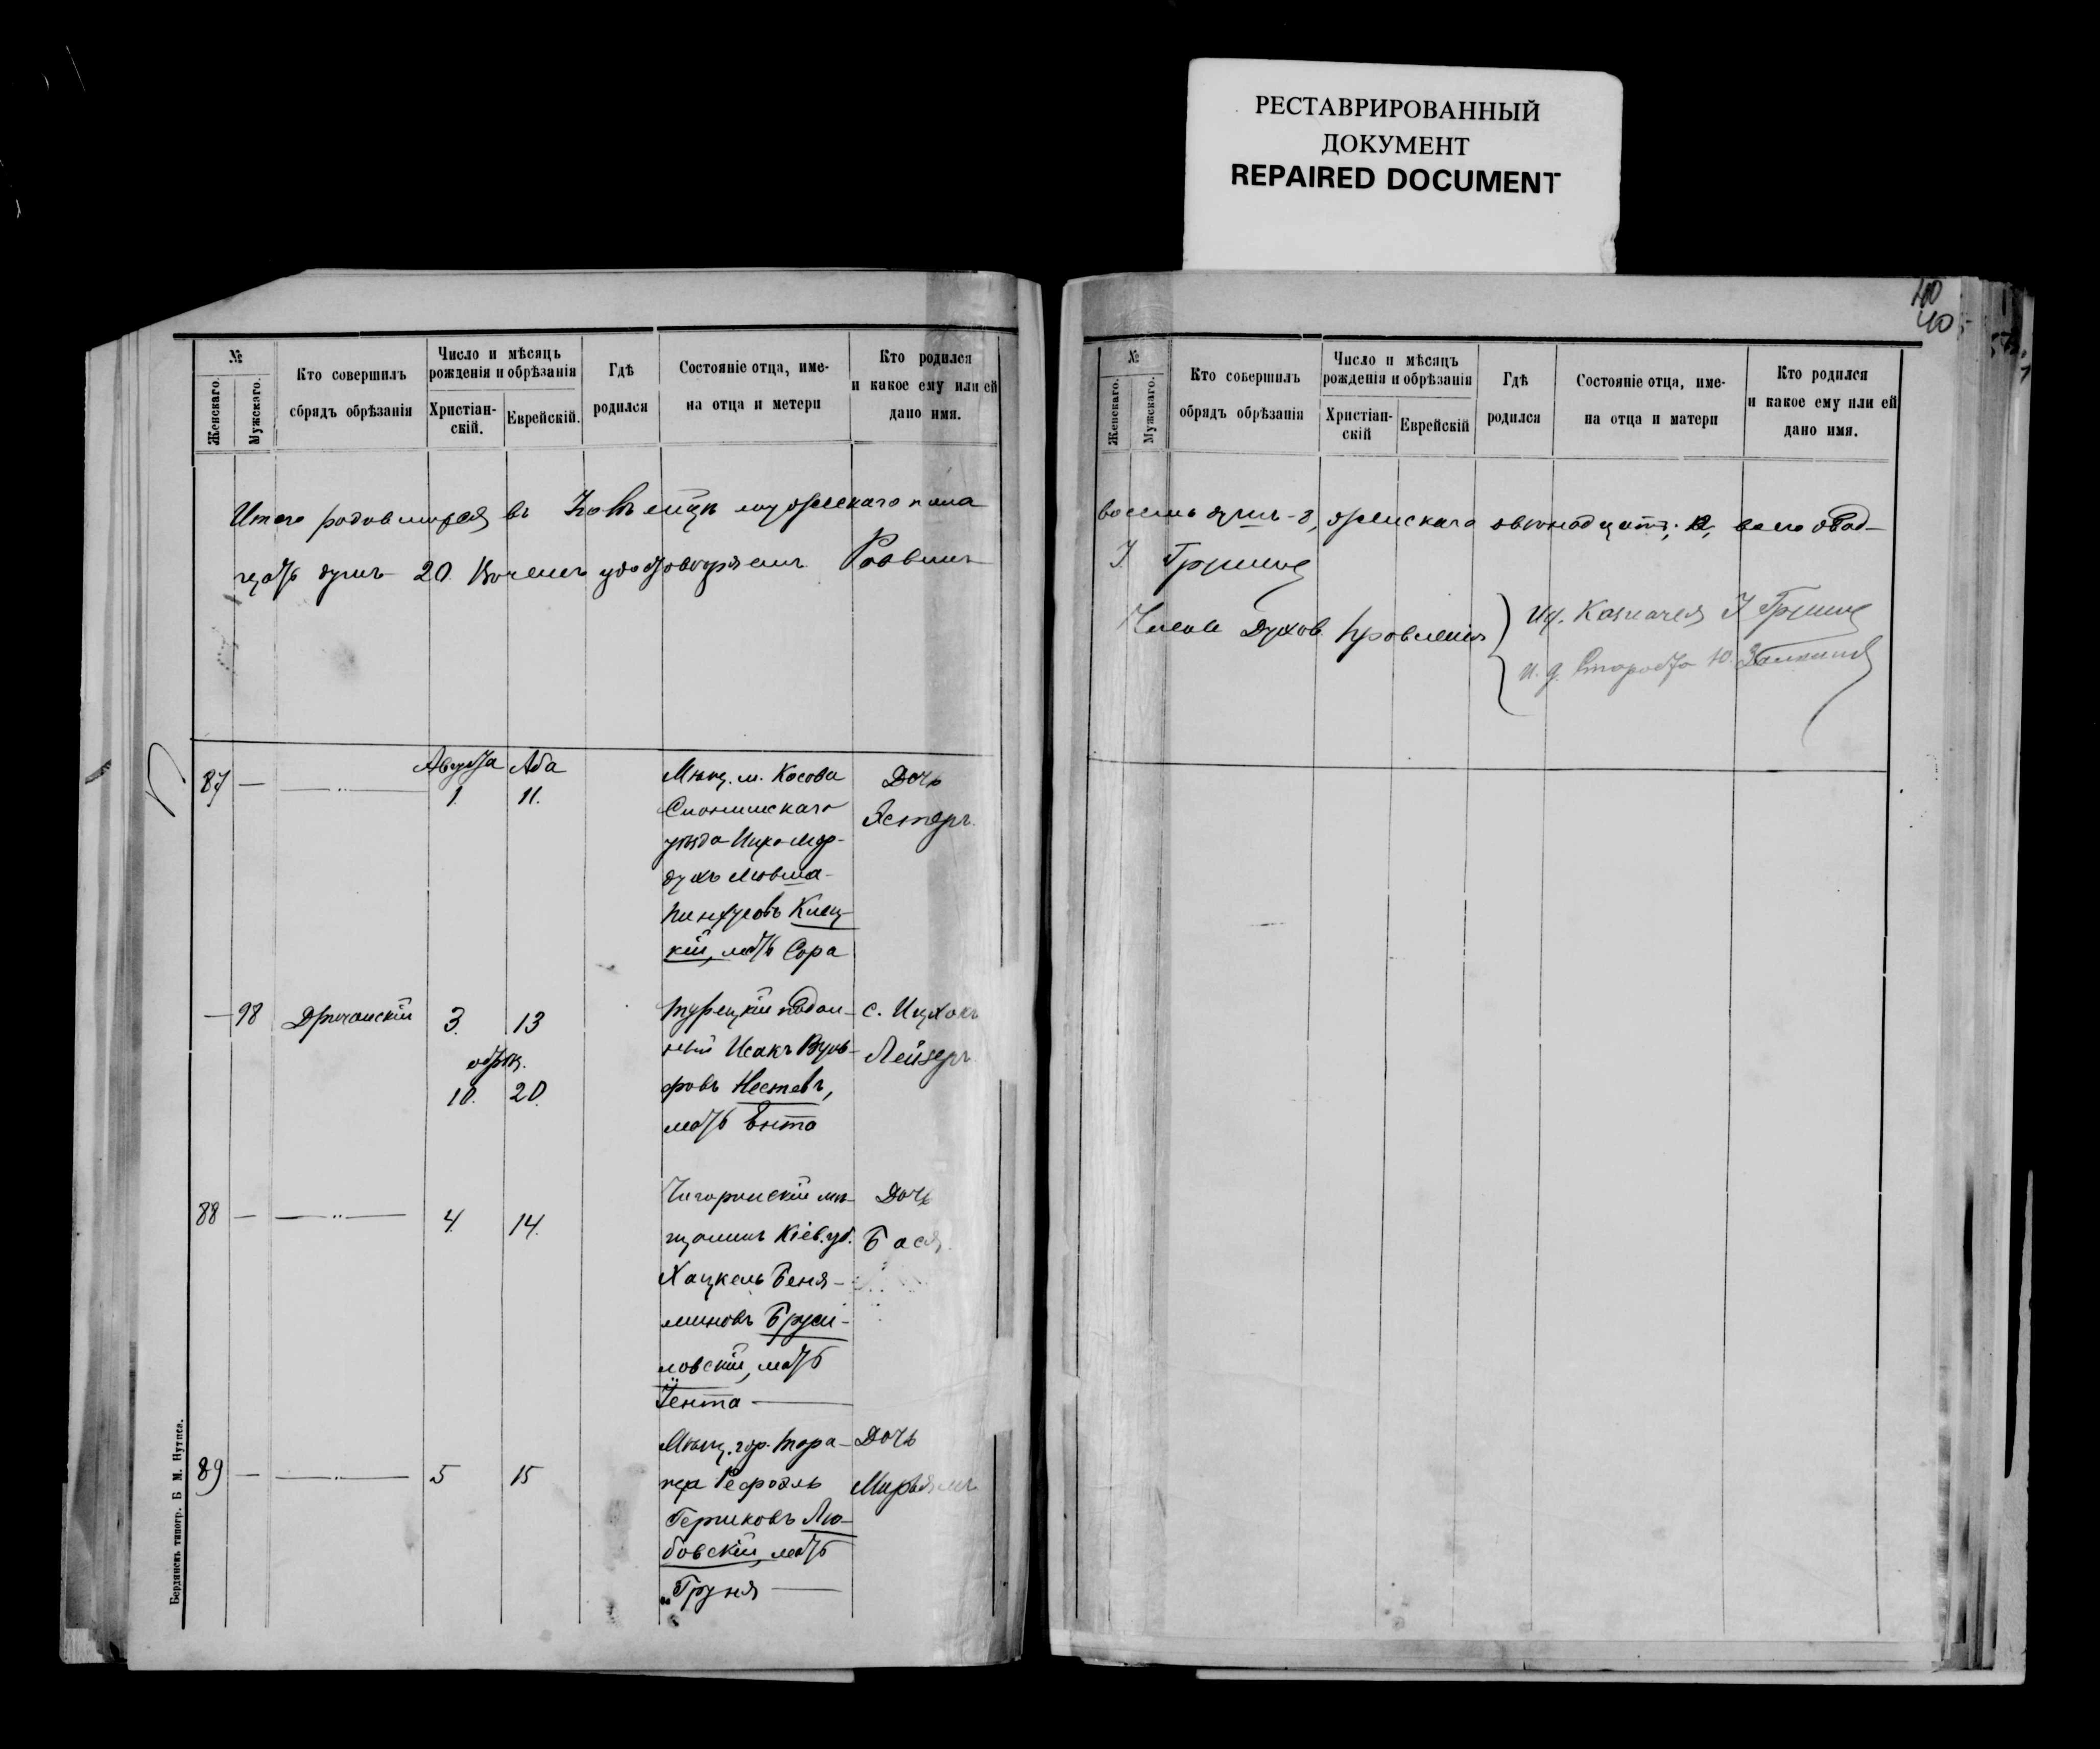 РЕСТАВРИРОВАННЫЙ
ДОКУМЕНТ
REPAIRED DOCUMENT
№
Женскаго.
Мужскаго.
Кто совершилъ
сбрядъ обрѣзанія
Число и мѣсяцъ
рожденія и обрѣзанія
Христіан-
скій.
Еврейскій.
Гдѣ
родился
Состояніе отца, име-
на отца и метери
Кто родился
и какое ему или ей
дано имя.
Итого родившихся въ мужескаго пола
20. удостовѣряемъ Раввинъ
87 — —„— Августа 1. Аба 11.
Мѣщ. м. Косова
Слонимскаго
уѣзда Ицко Мор-
духъ Мовша-
Пинхусовъ Клец-
кій, мать Сора
Дочь
Эстеръ.
— 98 3. 13
обрѣз.
10. 20.
Турецкій поддан-
ный Исакъ Вуль-
фовъ Нестевъ,
мать Ента
с. Ицхокъ
Лейзеръ
88 — —„— 4. 14.
Чигиринскій мѣ-
щанинъ Кіев. губ.
Хацкель Беня-
миновъ Бруси-
ловскій, мать
Іента —
Дочь
Бася
89 — —„— 5 15
Мѣщ. гор.
Рефоэль
Гершковъ Лю-
бовскій, мать
Груня —
Дочь
Мирьямъ
Бердянскъ типогр. Б М. Нутиса.
40
40
№
Женскаго.
Мужскаго.
Кто совершилъ
обрядъ обрѣзанія
Число и мѣсяцъ
рожденія и обрѣзанія
Христіан-
скій
Еврейскій
Гдѣ
родился
Состояніе отца, име-
на отца и матери
Кто родился
и какое ему или ей
дано имя.
восемь душъ-8, женскаго двенадцать, 12, всего двад-
Члены Духов. Правленія
И. д. Старосты